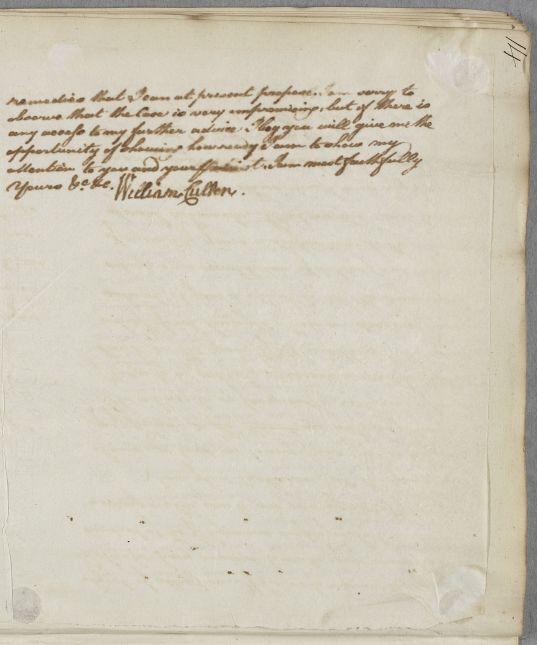 114
remedies that I can at present propose. I am sorry to
observe that the Case is very unpromising, but if there is
any access to my further advice I beg you will give me the
opportunity of shewing how ready I am to show my
attention to you and your Patient. I am most faithfully
Yours &c &c. William Cullen.